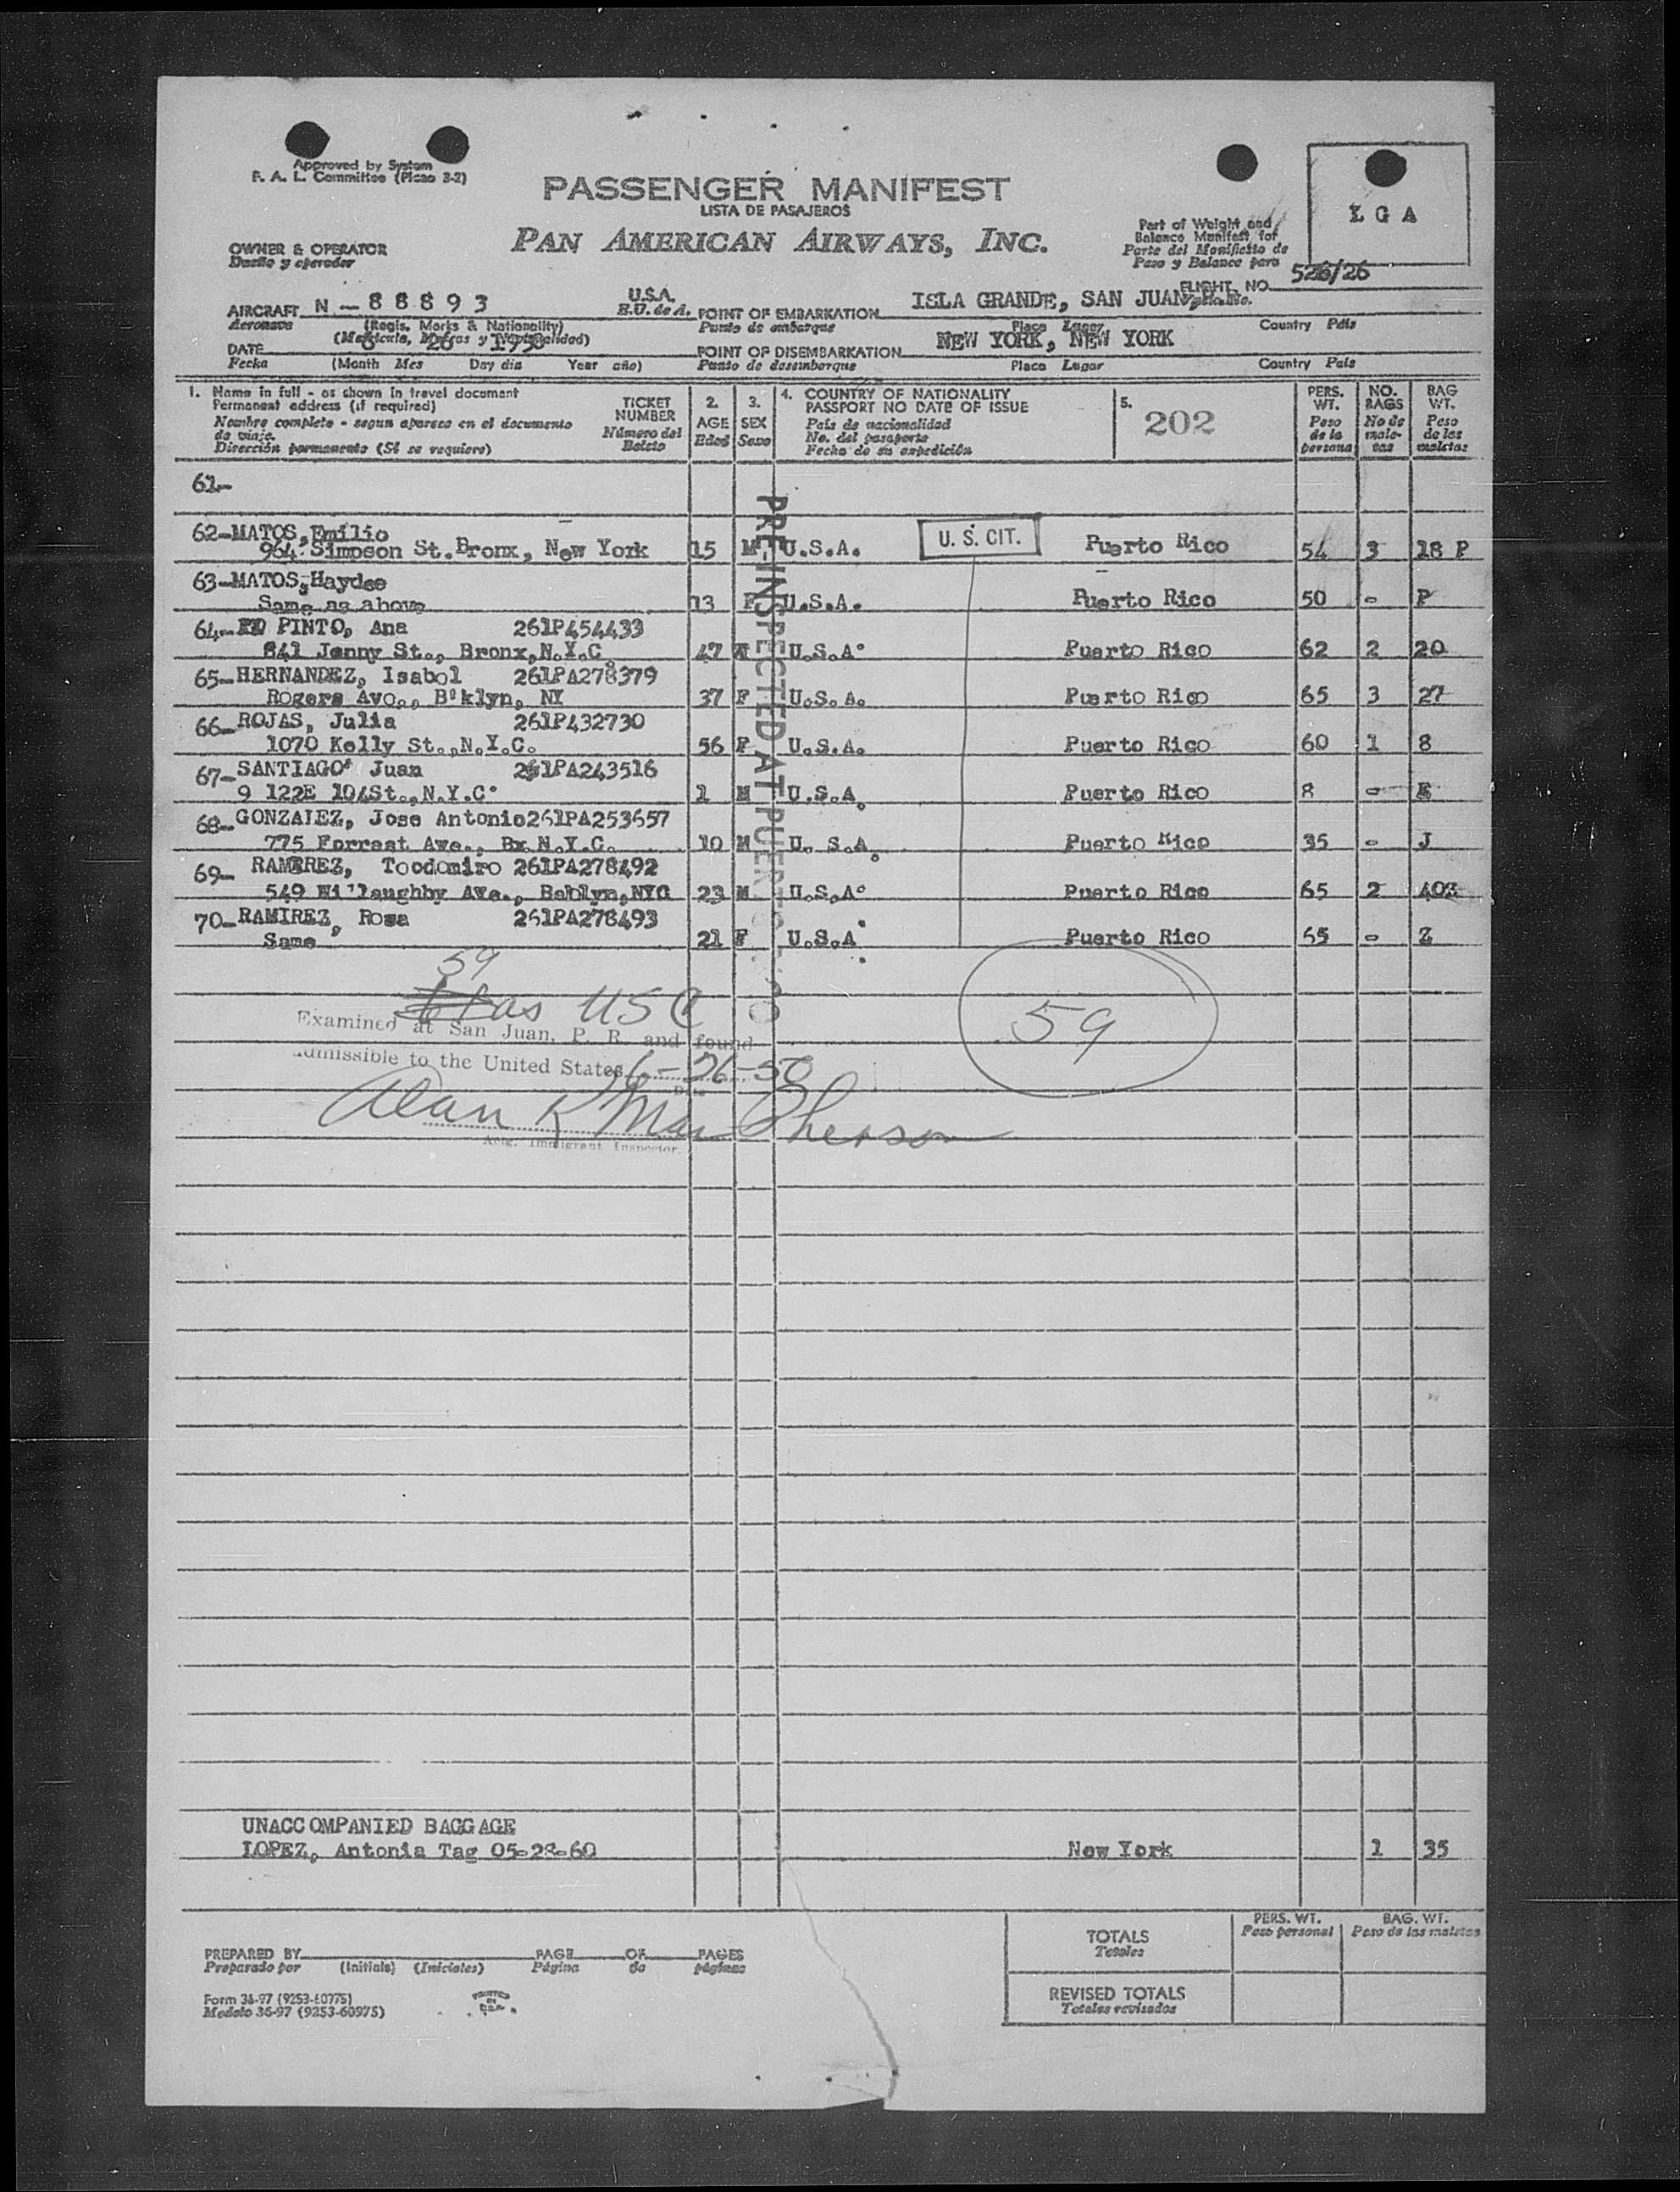 Approved by System
F. A. L. Committee (Plaza 3-2)
PASSENGER MANIFEST
LISTA DE PASAJEROS
PAN AMERICAN AIRWAYS, INC.
L G A
Part of Weight and
Balance Manifest for
Parte del Manifiesto de
Peso y Balance para
OWNER & OPERATOR
Dueño y operador
FLIGHT NO. 526/26
AIRCRAFT N-88893 U.S.A.
Aeronave (Regis. Marks & Nationality) E.U. de A.
(Matricula, Marcas y Nacionalidad)
POINT OF EMBARKATION ISLA GRANDE, SAN JUAN
Punto de embarque Place Lugar Country País
DATE 26 1950
Fecha (Month Mes Day dia Year año)
POINT OF DISEMBARKATION NEW YORK, NEW YORK
Punto de desembarque Place Lugar Country País
1. Name in full - as shown in travel document
Permanent address (if required)
Nombre completo - segun aparece en el documento
de viaje.
Dirección permanente (Si se requiere)
TICKET
NUMBER
Número del
Boleto
2.
AGE
Edad
3.
SEX
Sexo
4. COUNTRY OF NATIONALITY
PASSPORT NO DATE OF ISSUE
País de nacionalidad
No. del pasaporte
Fecha de su expedición
5.
202
PERS.
WT.
Peso
de la
persona
NO.
BAGS
No de
male-
tas
BAG
WT.
Peso
de las
maletas
61-
62-MATOS, Emilio
964 Simpson St. Bronx, New York 15 M U.S.A. U. S. CIT. Puerto Rico 54 3 18 P
63-MATOS, Haydee
Same as above 13 F U.S.A. Puerto Rico 50 - P
64- PINTO, Ana 261P454433
841 Jenny St., Bronx, N.Y.C 47 U.S.A. Puerto Rico 62 2 20
65-HERNANDEZ, Isabel 261PA278379
Rogers Ave., B'klyn, NY 37 F U.S.A. Puerto Rico 65 3 27
66-ROJAS, Julia 261P432730
1070 Kelly St., N.Y.C. 56 F U.S.A. Puerto Rico 60 1 8
67-SANTIAGO, Juan 261PA243516
9 122E 104St., N.Y.C. 1 M U.S.A. Puerto Rico 8 -
68-GONZALEZ, Jose Antonio 261PA253657
775 Forrest Ave., Bx N.Y.C. 10 M U. S.A. Puerto Rico 35 - J
69- RAMIREZ, Teodomiro 261PA278492
549 Willaughby Ave., NYC 23 M U.S.A. Puerto Rico 65 2 40Z
70-RAMIREZ, Rosa 261PA278493
Same 21 F U.S.A. Puerto Rico 55 - Z
PRE-INSPECTED AT PUERTO RICO
59
as USC
Examined at San Juan, P. R. and found
admissible to the United States 6-26-50
Date
59
Alan R MacPherson
Actg. Immigrant Inspector.
UNACCOMPANIED BAGGAGE
LOPEZ, Antonia Tag 05-28-60 New York 1 35
PREPARED BY PAGE OF PAGES
Preparado por (Initials) (Iniciales) Página de páginas
Form 36-97 (9253-60975)
Modelo 36-97 (9253-60975)
PRINTED
IN
U.S.A.
PERS. WT.
Peso personal
BAG. WT.
Peso de las maletas
TOTALS
Totales
REVISED TOTALS
Totales revisados